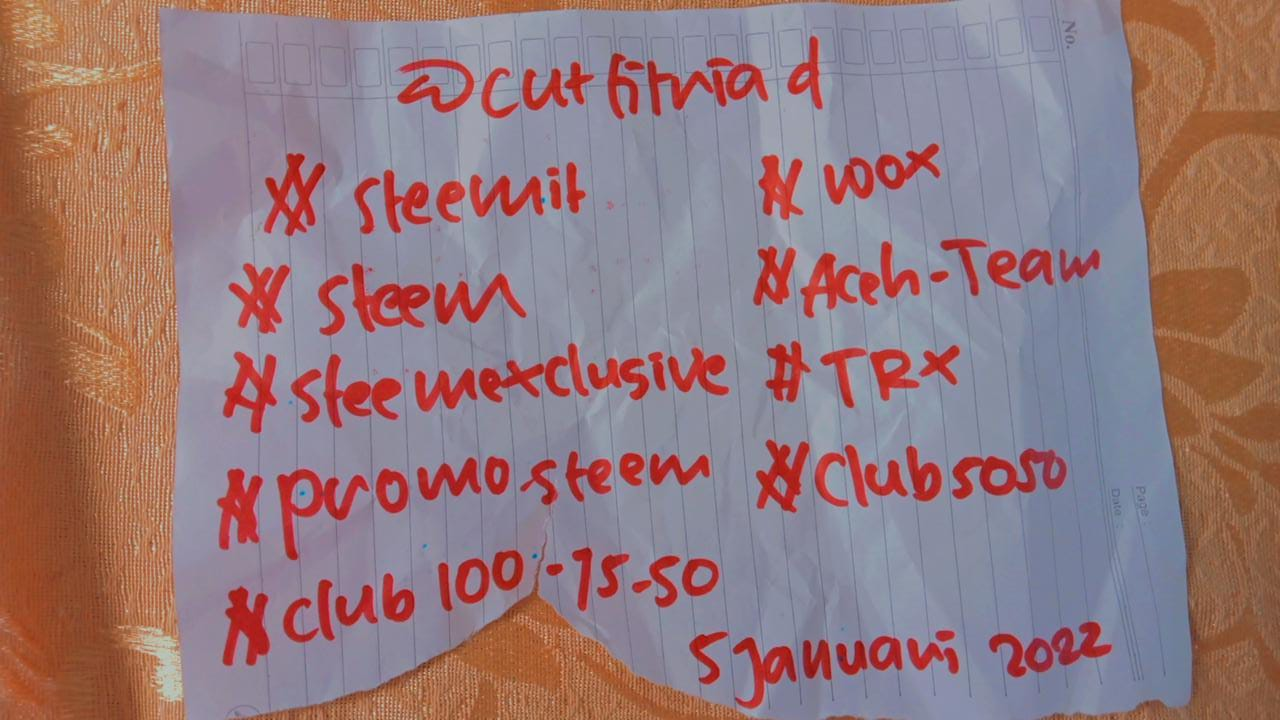 @cutfitriad
# steemit
# steem
# steemexclusive
# promosteem
# club 100-75-50
# wox
# Aceh-Team
# TRX
# Club5050
5 Januari 2022
No.
Page:
Date: